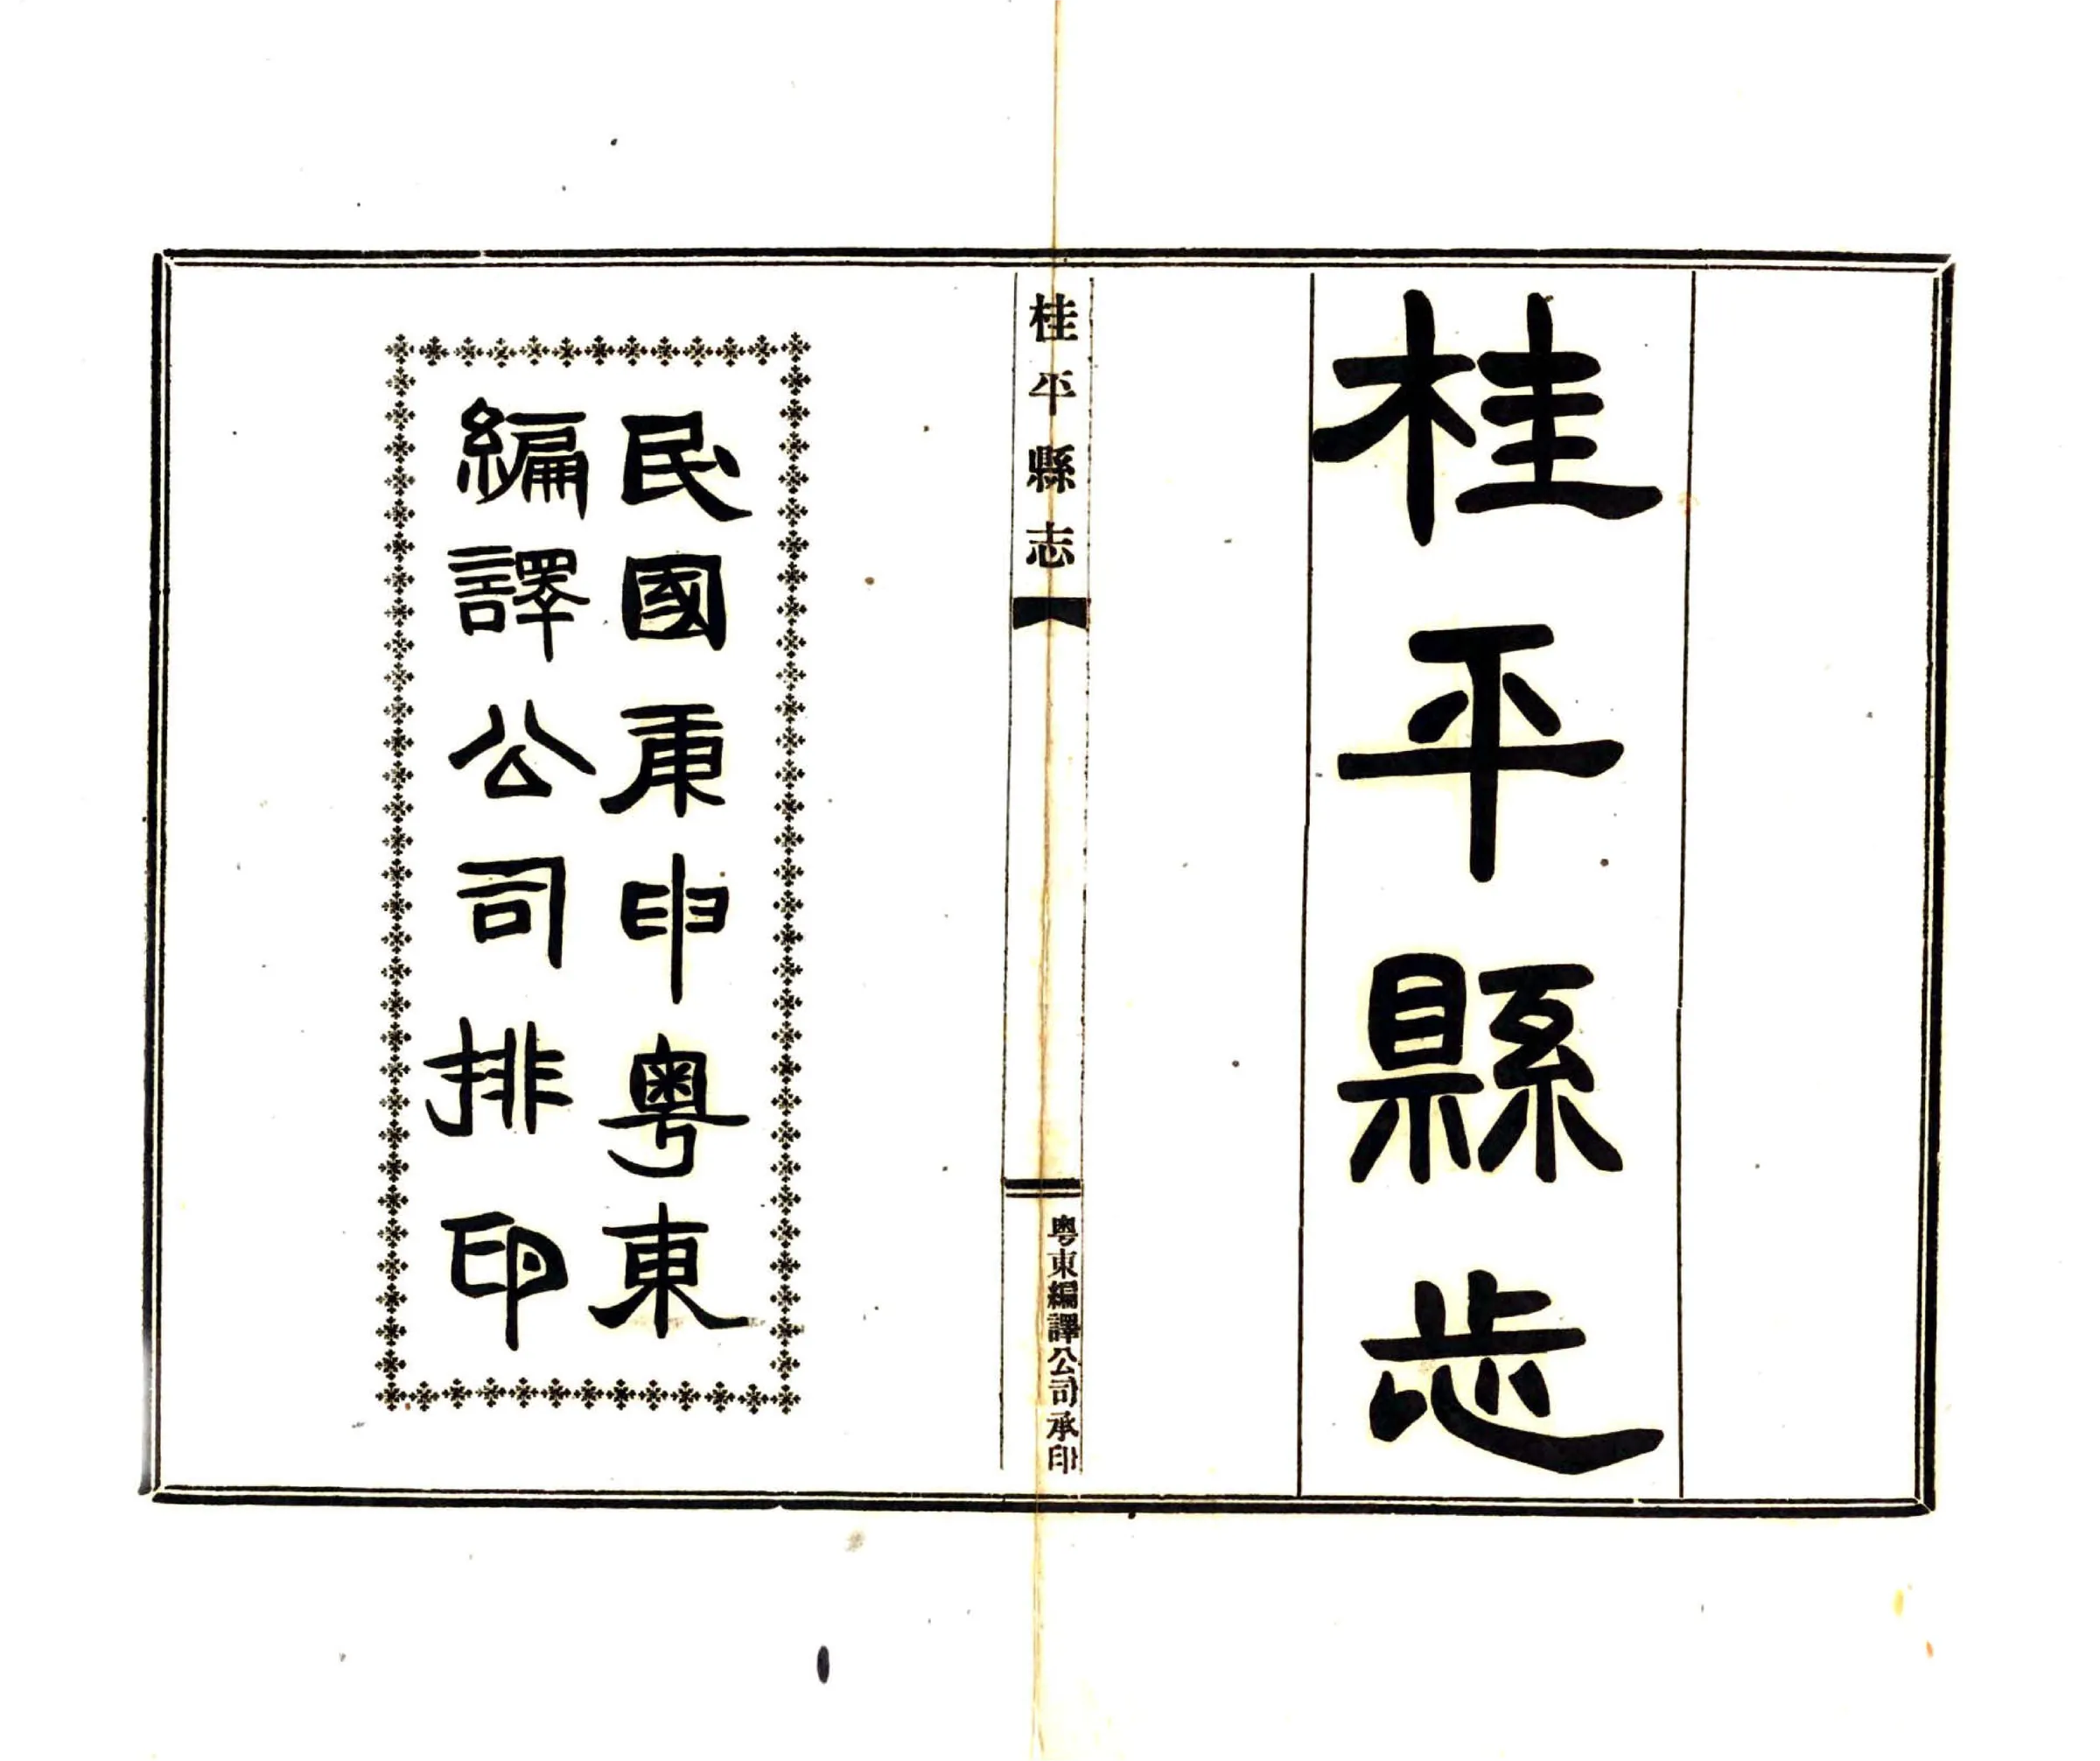 桂平縣志
桂平縣志
粵東編譯公司承印
民國庚申粵東
編譯公司排印